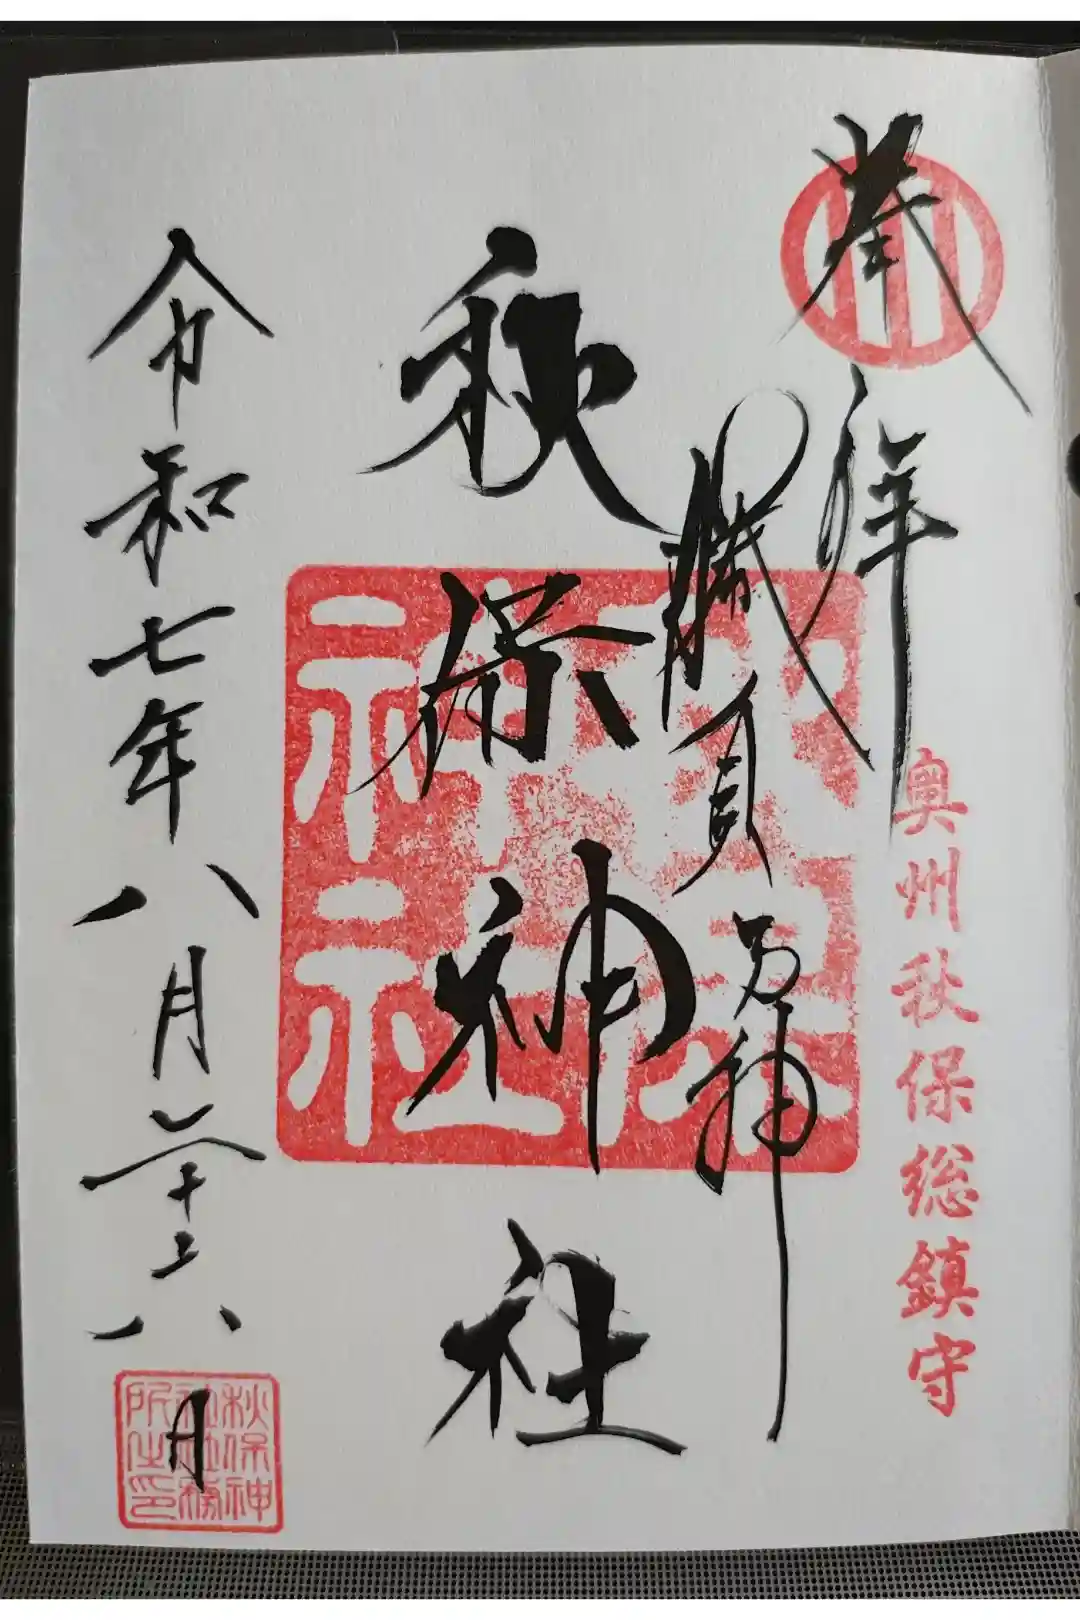 奉拝
奥州秋保総鎮守
勝負乃神
秋保神社
秋保神社
令和七年八月二十六日
秋保神
社社務
所之印